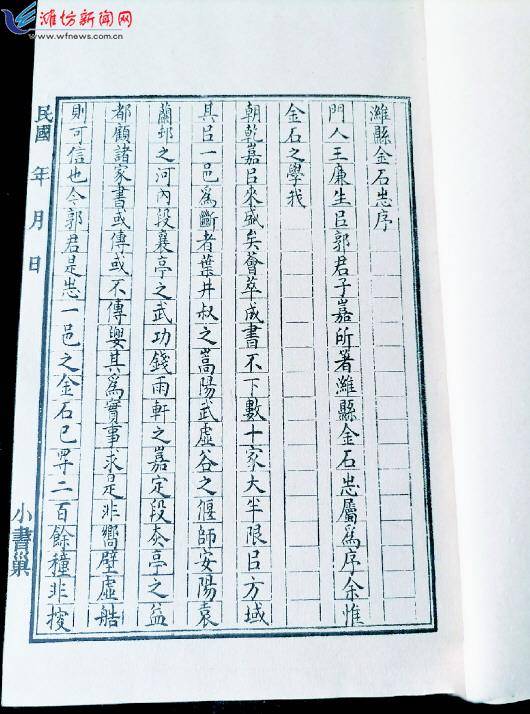 潍坊新闻网
www.wfnews.com.cn
濰縣金石志序
門人王廉生㠯郭君子嘉所著濰縣金石志屬爲序余惟
金石之學我
朝乾嘉㠯來盛矣薈萃成書不下數十家大半限㠯方域
其㠯一邑爲斷者葉井叔之嵩陽武虛谷之偃師安陽袁
蘭邨之河內段襄亭之武功錢雨軒之嘉定段赤亭之益
都顧諸家書或傳或不傳要其爲實事求是非嚮壁虛造
則可信也今郭君是志一邑之金石已畀二百餘種非接
民國 年 月 日
小書巢